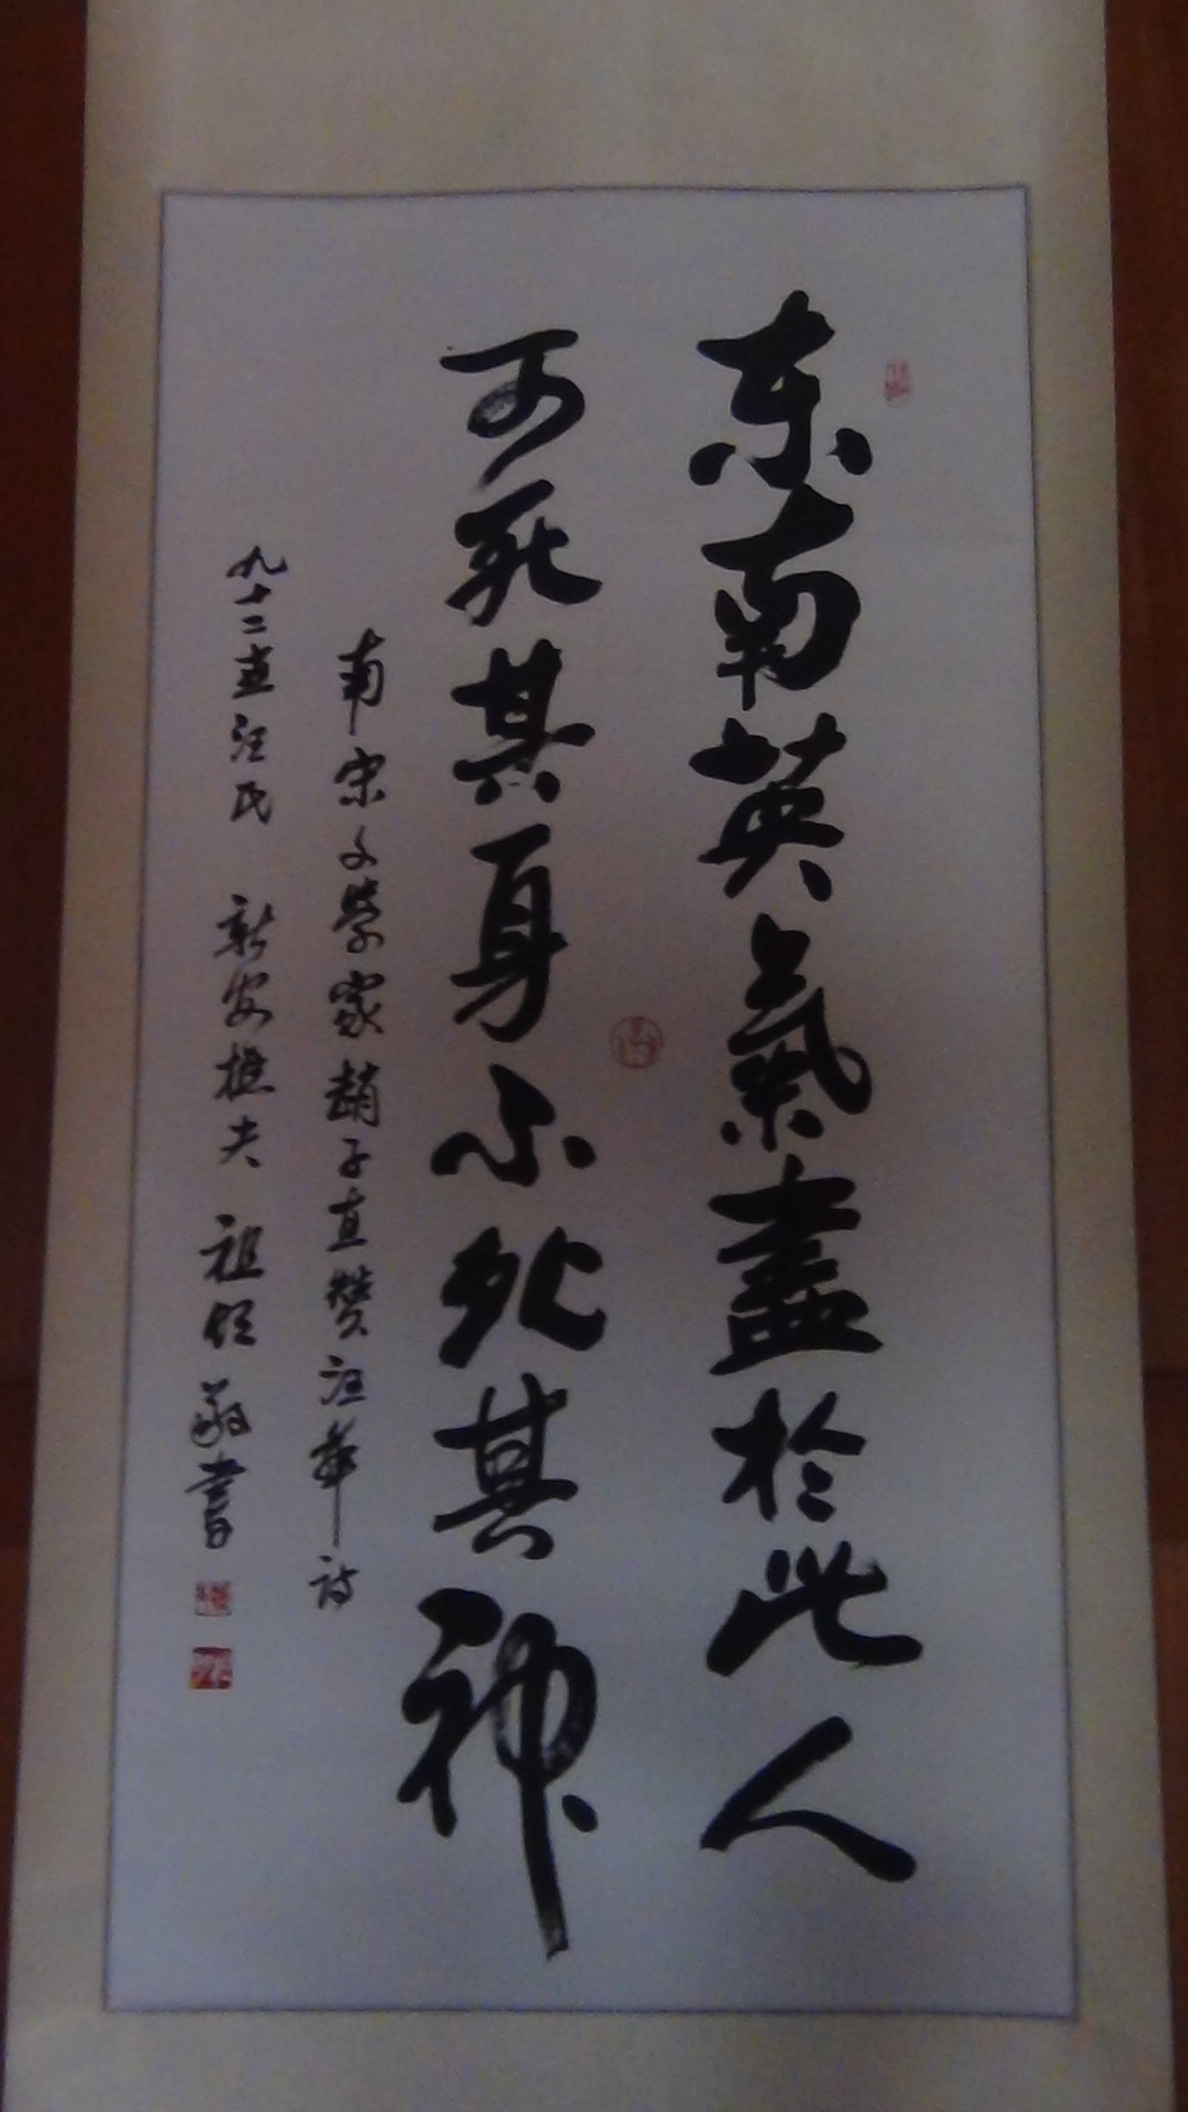 东南英氣盡於此人
可死其身不死其神
南宋文學家趙子直赞汪華詩
九十二世汪氏 新安樵夫 祖 敬書